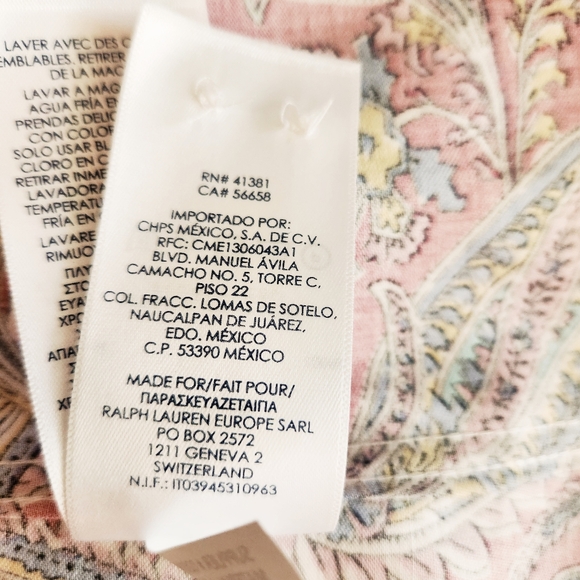 LAVER AVEC DES
RETIRER
DE LA
LAVAR A
AGUA FRÍA
PRENDAS
CON
SOLO USAR
CLORO EN
RETIRAR
LAVADORA
FRÍA EN
LAVARE
RN# 41381
CA# 56658
IMPORTADO POR:
CHPS MÉXICO, S.A. DE C.V.
RFC: CME1306043A1
BLVD. MANUEL ÁVILA
CAMACHO NO. 5, TORRE C,
PISO 22
COL. FRACC. LOMAS DE SOTELO,
NAUCALPAN DE JUÁREZ,
EDO. MÉXICO
C.P. 53390 MÉXICO
MADE FOR/FAIT POUR/
ΠΑΡΑΣΚΕΥΑΖΕΤΑΙΓΙΑ
RALPH LAUREN EUROPE SARL
PO BOX 2572
1211 GENEVA 2
SWITZERLAND
N.I.F.: IT03945310963